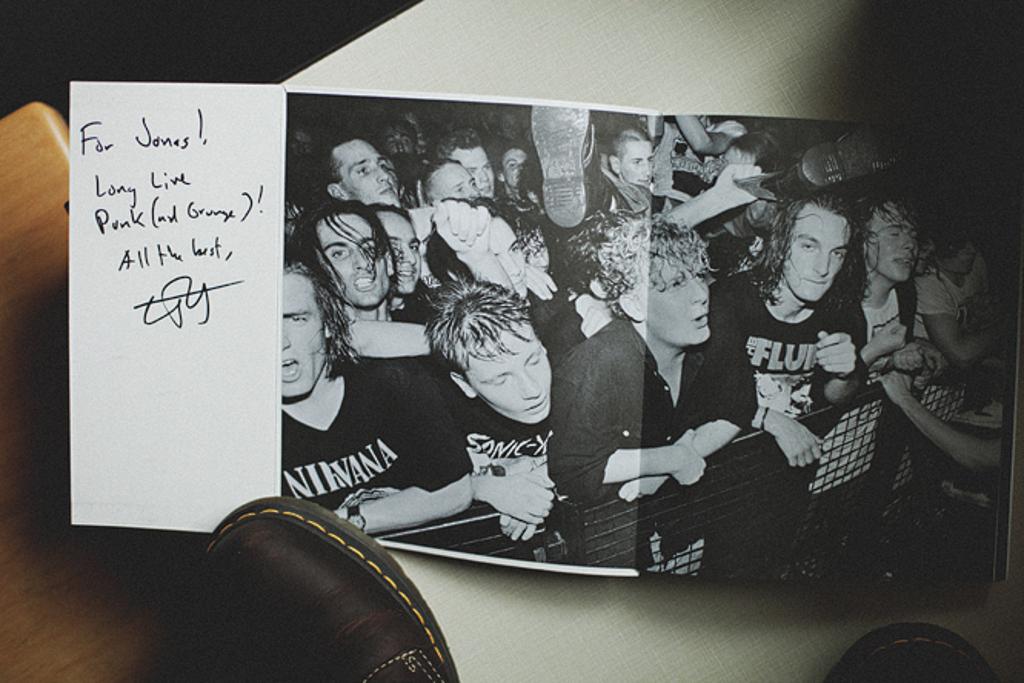 For Jonas!
Long Live
Punk (and Grunge)!
All the best,
NIRVANA
SONIC-
THE
FLUI